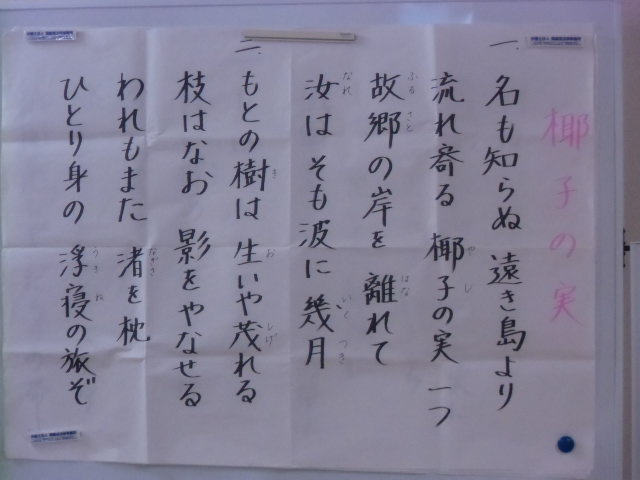 椰子の実
一、名も知らぬ 遠き島より
流れ寄る 椰子の実 一つ
故郷の岸を 離れて
汝は そも波に 幾月
二、もとの樹は 生いや茂れる
枝はなお 影をやなせる
われもまた 渚を枕
ひとり身の 浮寝の旅ぞ